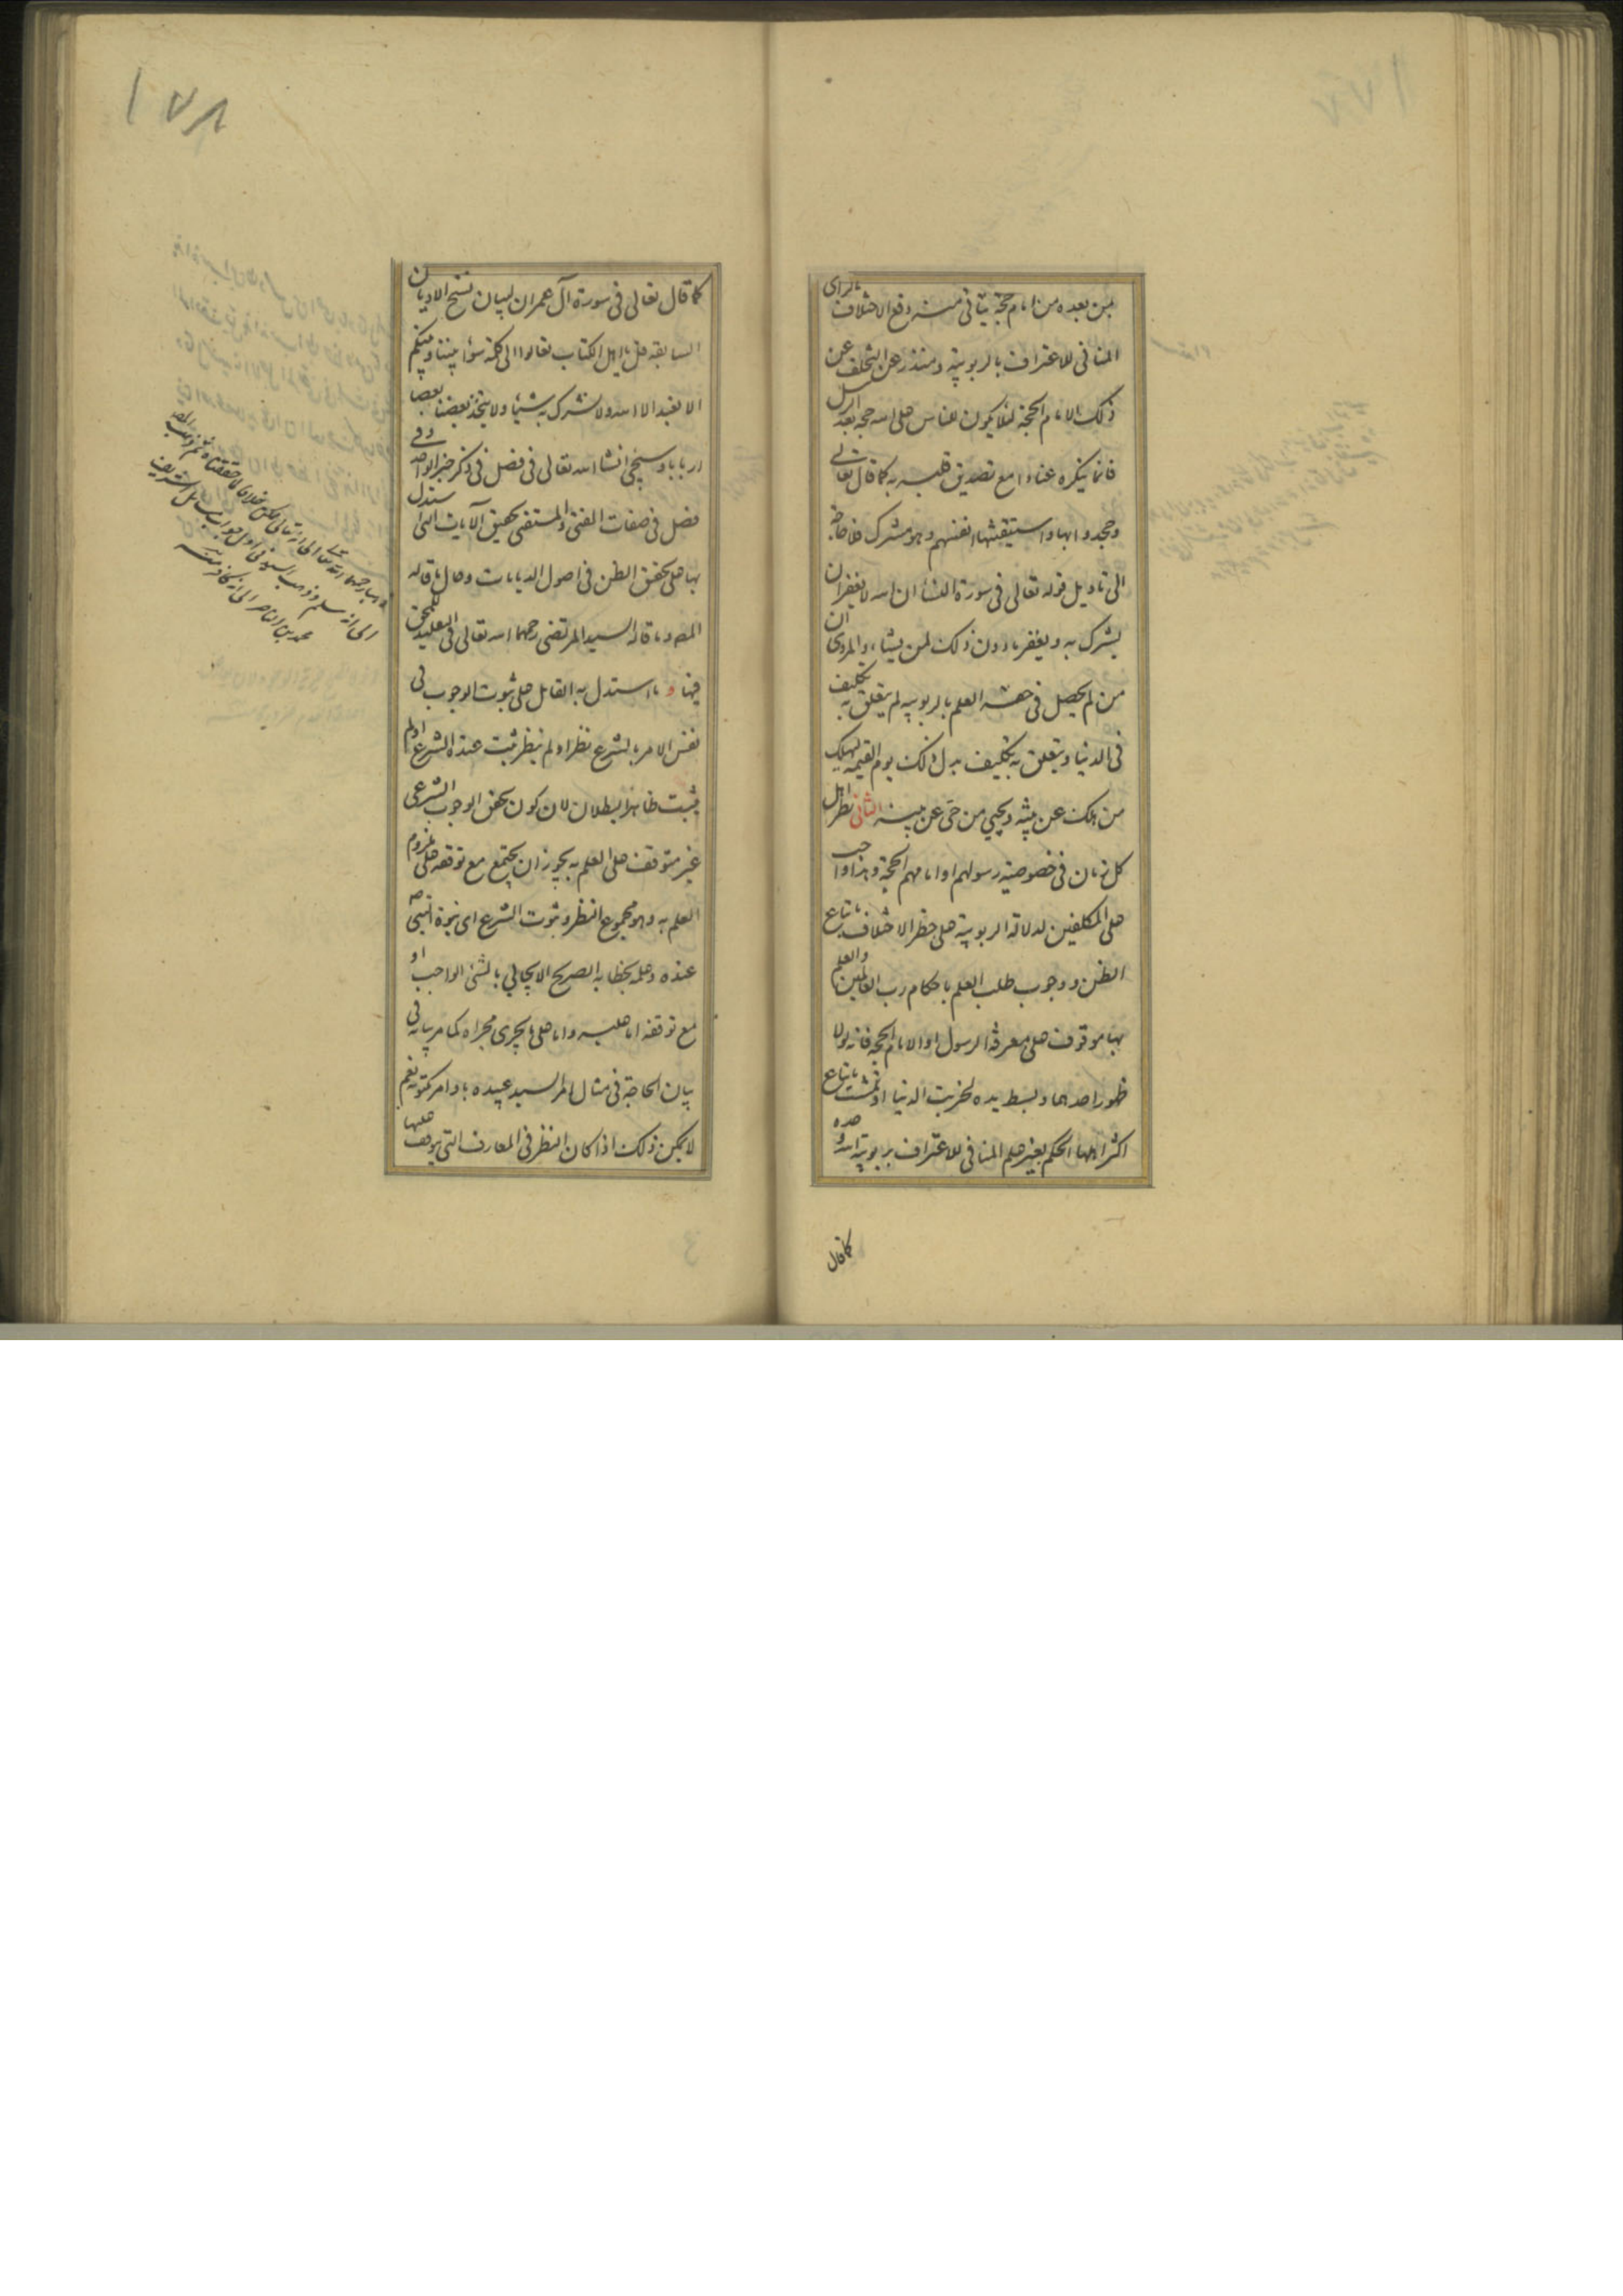 من بعده من امام حجة يتأتى منه دفع الاختلاف بالراى
المنافى للاعتراف بالربوبية ومنذر عن التخلف عن
ذلك الامام الحجة لئلا يكون للناس على الله حجة بعد الرسل
فانما ينكره عنادا مع تصديق قلبه به كما قال تعالى
وجحدوا بها واستيقنتها انفسهم وهو مشرك فلا حاجة
الى تاويل قوله تعالى فى سورة النساء ان الله لا يغفر ان
يشرك به ويغفر ما دون ذلك لمن يشاء والمروى ان
من لم يحصل فى حقه العلم بالربوبية لم يتعلق به تكليف
فى الدنيا ويتعلق به تكليف بدل ذلك يوم القيمة ليهلك
من هلك عن بينة ويحيى من حى عن بينة الثانى نظر اهل
كل زمان فى خصوصية رسولهم او امامهم الحجة وهذا واجب
على المكلفين لدلالة الربوبية على حظر الاختلاف باتباع
الظن ووجوب طلب العلم باحكام رب العالمين والعلم
بها موقوف على معرفة الرسول او الامام الحجة فانه لولا
ظهور احدهما وبسط يده لخربت الدنيا او تمشت باتباع
اكثر اهلها الحكم بغير علم المنافى للاعتراف بربوبية الله وحده
كما قال
١٧٨
كما قال تعالى فى سورة آل عمران لبيان نسخ الاديان
السابقة قل يا اهل الكتاب تعالوا الى كلمة سواء بيننا وبينكم
الا نعبد الا الله ولا نشرك به شيئا ولا يتخذ بعضنا بعضا
اربابا وسيجئ انشاء الله تعالى فى فصل فى ذكر خبر الواحد وفى
فصل فى صفات المفتى والمستفتى تحقيق الآيات التى استدل
بها على تحقق الظن فى اصول الديانات وحال ما قاله
المصـ وما قاله السيد المرتضى رحمهما الله تعالى فى التقليد للمحق
فيها و ما استدل به القائل على ثبوت الوجوب فى
نفس الامر بالشرع نظر او لم ينظر ثبت عنده الشرع او لم
يثبت ظاهر البطلان لان كون تحقق الوجوب الشرعى
غير متوقف على العلم به يجوز ان يجتمع مع توقفه على ملزوم
العلم به وهو مجموع النظر وثبوت الشرع اى نبوة النبى ص
عنده وعلمه بخطابه الصريح الايجابى بالشئ الواجب او
مع توقفه اما عليه واما على ما يجرى مجراه كما مر بيانه فى
بيان الحاجة فى مثال امر السيد عبيده باوامر مكتوبة نعم
لا يمكن ذلك اذا كان النظر فى المعارف التى يتوقف عليها